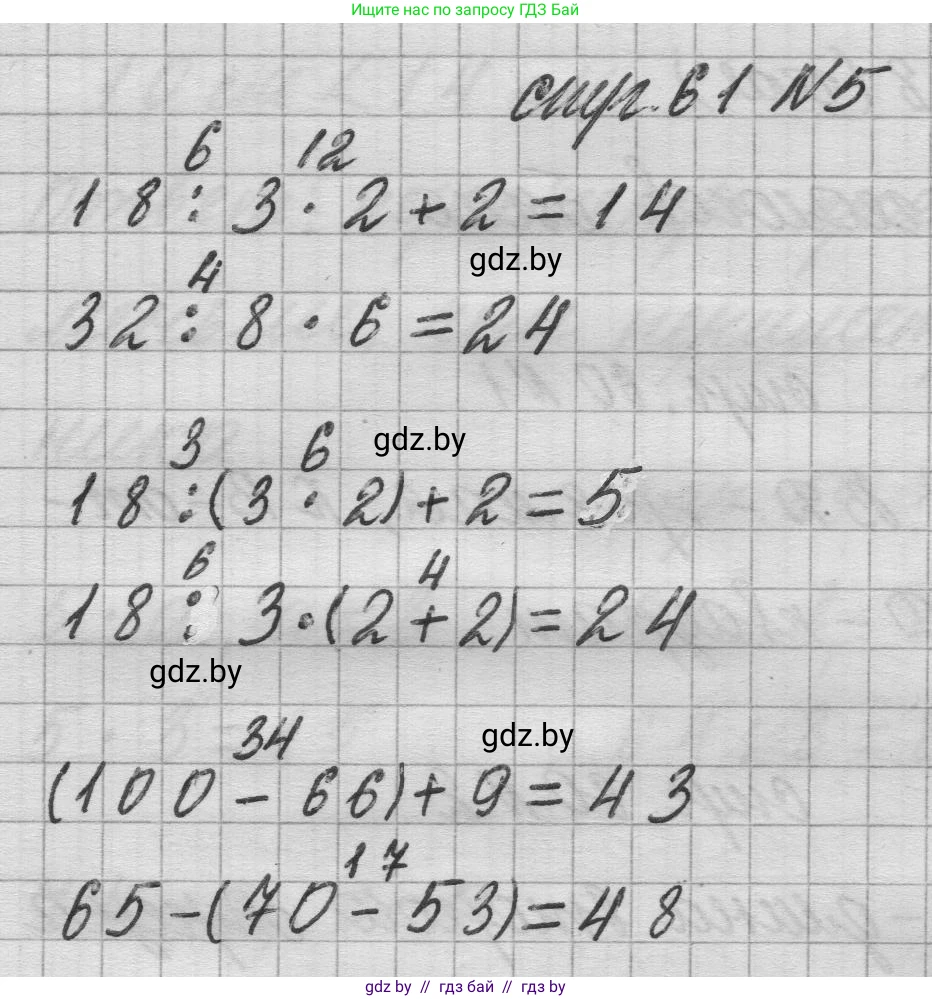 Ищите нас по запросу ГДЗ Бай
стр. 61 №5
6 12
18 : 3 · 2 + 2 = 14
gdz.by
4
32 : 8 · 6 = 24
3 6
gdz.by
18 : (3 · 2) + 2 = 5
6 4
18 : 3 · (2 + 2) = 24
gdz.by
34
gdz.by
(100 - 66) + 9 = 43
17
65 - (70 - 53) = 48
gdz by // гдз бай // gdz by